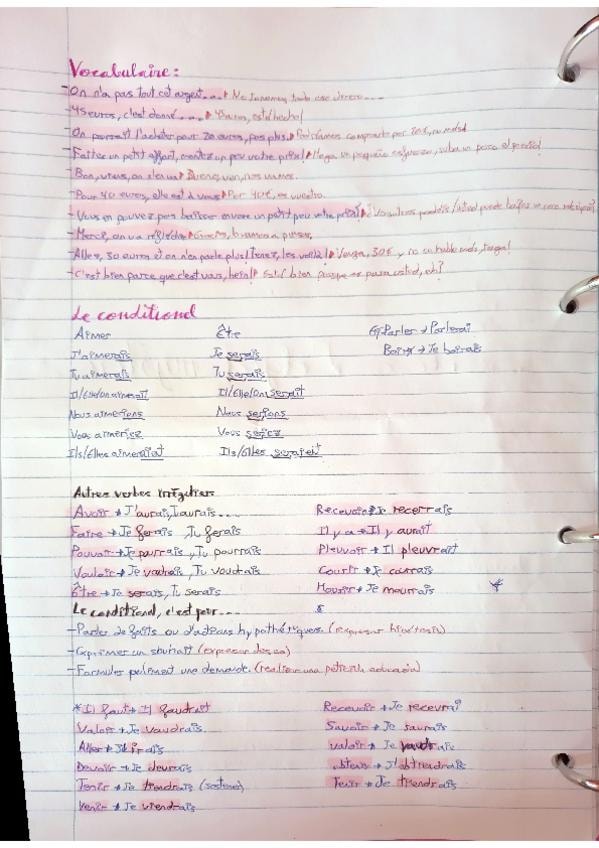 Vocabulaire:
-On n'a pas tout cet argent... → No tenemos todo ese dinero...
-45 euros, c'est donné... → 45 euros, está hecho!
-On pourrait l'acheter pour 20 euros, pas plus. → Podríamos comprarlo por 20€, no más
-Faites un petit effort, montez un peu votre prix! → Haga un pequeño esfuerzo, suba un poco el precio!
-Bon, viens, on s'en va → Bueno, ven, nos vamos.
-Pour 40 euros, elle est à vous → Por 40€, es vuestra.
-Vous en pouvez pas baisser encore un petit peu votre prix?
-Merci, on va réfléchir → Gracias, vamos a pensar.
-Allez, 30 euros et on n'en parle plus! Tenez, les voilà! → Venga, 30€ y no se hable más, tenga!
-C'est bien parce que c'est vous, hein! → Está bien porque es para usted, eh?
Le conditionel
Aimer Être Parler → Parlerai
J'aimerais Je serais Boire → Je boirais
Tu aimerais Tu serais
Il/Elle/on aimerait Il/Elle/On serait
Nous aimerions Nous serions
Vous aimeriez Vous seriez
Ils/Elles aimeraient Ils/Elles seraient
Autres verbes irréguliers
Avoir → J'aurai, Tu aurais... Recevoir → Je recerrais
Faire → Je ferais, Tu ferais Il y a → Il y aurait
Pouvoir → Je pourrais, Tu pourrais Pleuvoir → Il pleuvrait
Vouloir → Je voudrais, Tu voudrais Courir → Je courrais
Être → Je serais, Tu serais Mourir → Je mourrais *
Le conditional, c'est pour...
-Parler de faits ou d'actions hypothétiques
-Exprimer un souhait (expresar deseo)
-Formuler poliment une demande. (realizar una petición educada)
*Il faut → Il faudrait Recevoir → Je recevrai
Valoir → Je vaudrais Savoir → Je saurais
Aller → J'irais valoir → Je vaudrais
Devoir → Je devrais obtenir → J'obtiendrais
Tenir → Je tiendrais (sostener) Tenir → Je tiendrais
Venir → Je viendrais